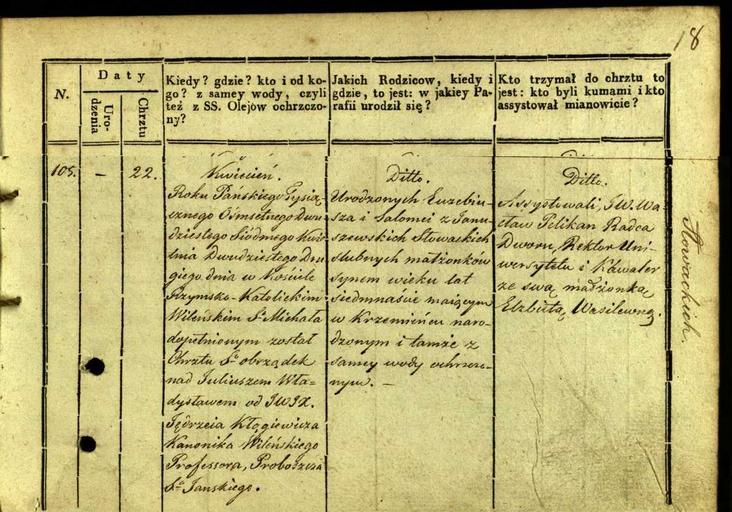 18
N.
Daty
Urodzenia
Chrztu
Kiedy? gdzie? kto i od ko-
go? z samey wody, czyli
też z SS. Olejów ochrzczo-
ny?
Jakich Rodzicow, kiedy i
gdzie, to jest: w jakiey Pa-
rafii urodził się?
Kto trzymał do chrztu to
jest: kto byli kumami i kto
assystował mianowicie?
105.
—
22.
Kwiecień.
Roku Pańskiego Tysią-
cznego Ośmsetnego Dwu-
dziestego Siódmego Kwie-
tnia Dwudziestego Dru-
giego dnia w Kościele
Rzymsko-Katolickim
Wileńskim Sº Michała
dopełnionym został
Chrztu Sº obrządek
nad Juliuszem Wła-
dysławem od JWJX.
Jędrzeia Kłągiewicza
Kanonika Wileńskiego
Professora, Proboszcza
Sº Janskiego.
Ditto.
Urodzonych Euzebiu-
sza i Salomei z Janu-
szewskich Słowackich
ślubnych małżonków
synem wieku lat
siedmnaście maiącym
w Krzemieńcu naro-
dzonym i tamże z
samey wody ochrzczo-
nym. —
Ditto.
Assystowali, JW. Wa-
cław Pelikan Radca
Dworu, Rektor Uni-
wersytetu i Kawaler
ze swą małżonką
Elżbiętą Wasilewną.
Słowackich.